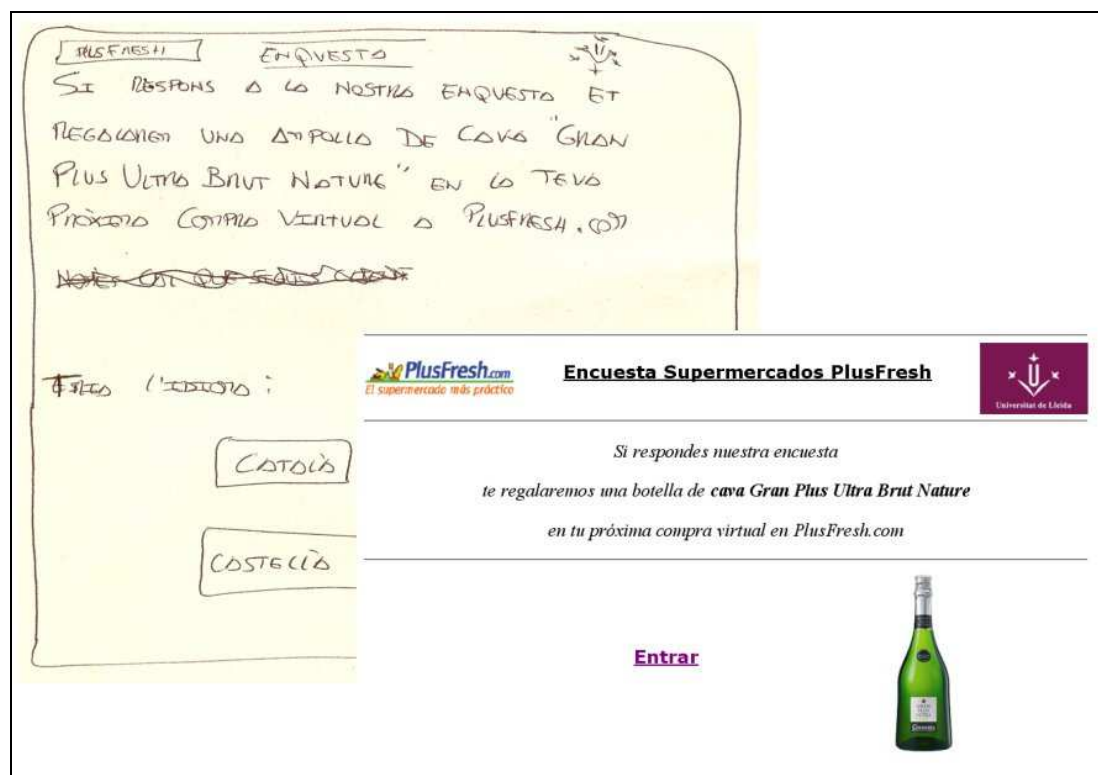 PLUSFRESH
ENQUESTA
SI RESPONS A LA NOSTRA ENQUESTA ET
REGALAREM UNA AMPOLLA DE CAVA "GRAN
PLUS ULTRA BRUT NATURE" EN LA TEVA
PRÒXIMA COMPRA VIRTUAL A PLUSFRESH.COM
NOMÉS CAL QUE
L'IDIOMA:
CATALÀ
CASTELLÀ
PlusFresh.com
El supermercado más práctico
Encuesta Supermercados PlusFresh
Universitat de Lleida
Si respondes nuestra encuesta
te regalaremos una botella de cava Gran Plus Ultra Brut Nature
en tu próxima compra virtual en PlusFresh.com
Entrar